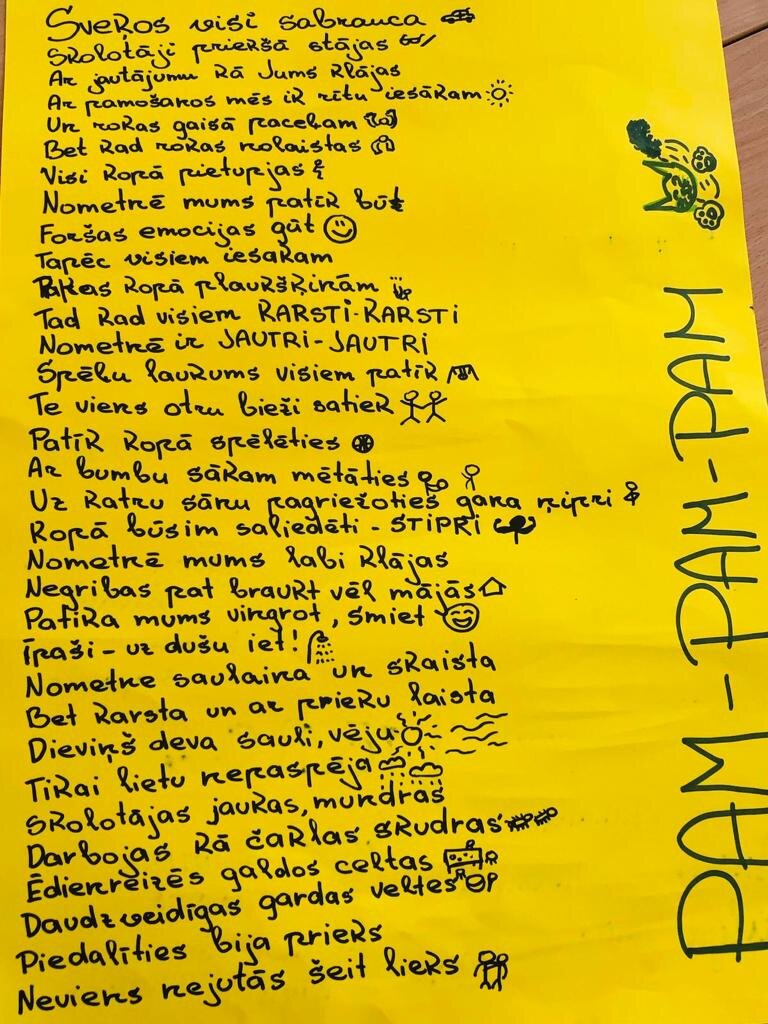 Sveķos visi sabrauca
Skolotāji priekšā stājas
Ar jautājumu kā Jums klājas
Ar pamošanos mēs ik rītu iesākam
Un rokas gaisā paceļam
Bet kad rokas nolaistas
Visi kopā pietupjas
Nometnē mums patīk būt
Foršas emocijas gūt
Tapēc visiem iesakam
kopā plaukšķinām
Tad kad visiem KARSTI-KARSTI
Nometnē ir JAUTRI-JAUTRI
Spēļu laukums visiem patīk
Te viens otru bieži satiek
Patīk kopā spēlēties
Ar bumbu sākam mētāties
Uz katru sānu pagriežoties gana ņipri
Kopā būsim saliedēti - STIPRI
Nometnē mums labi klājas
Negribas pat braukt vēl mājās
Patika mums vingrot, smiet
Īpaši - uz dušu iet!
Nometne saulaina un skaista
Bet karsta un ar prieku laista
Dieviņš deva sauli, vēju
Tikai lietu nepaspēja
Skolotājas jaukas, mundras
Darbojas kā čaklas skudras
Ēdienreizēs galdos celtas
Daudzveidīgas gardas veltes
Piedalīties bija prieks
Neviens nejutās šeit lieks
PAM-PAM-PAM